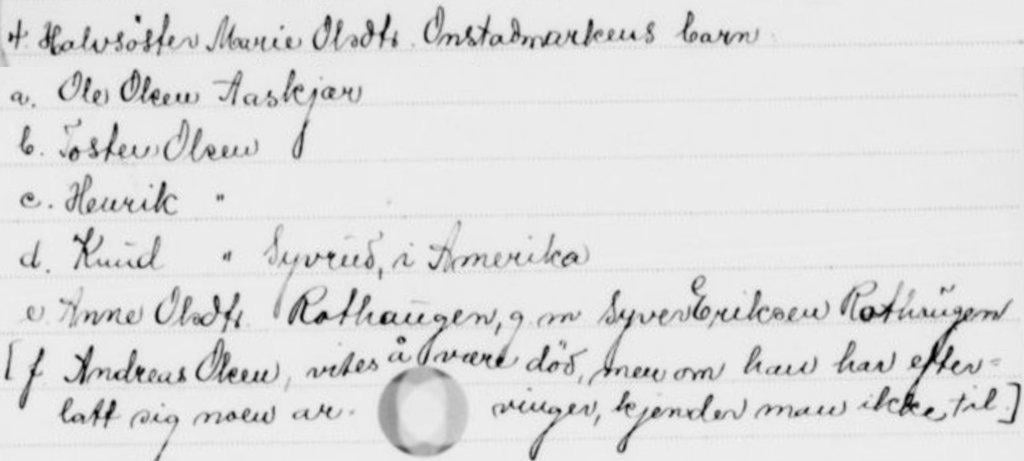 4. Halvsöster Marie Olsdtr. Onstadmarkens barn
a. Ole Olsen Aaskjær
b. Tosten Olsen
c. Henrik "
d. Knud " Syvrud, i Amerika
e Anne Olsdtr. Rothaugen, g. m Syver Eriksen Rothaugen
[f Andreas Olsen, vites å være död, men om han har efter=
latt sig noen ar. vinger, kjender man ikke til.]